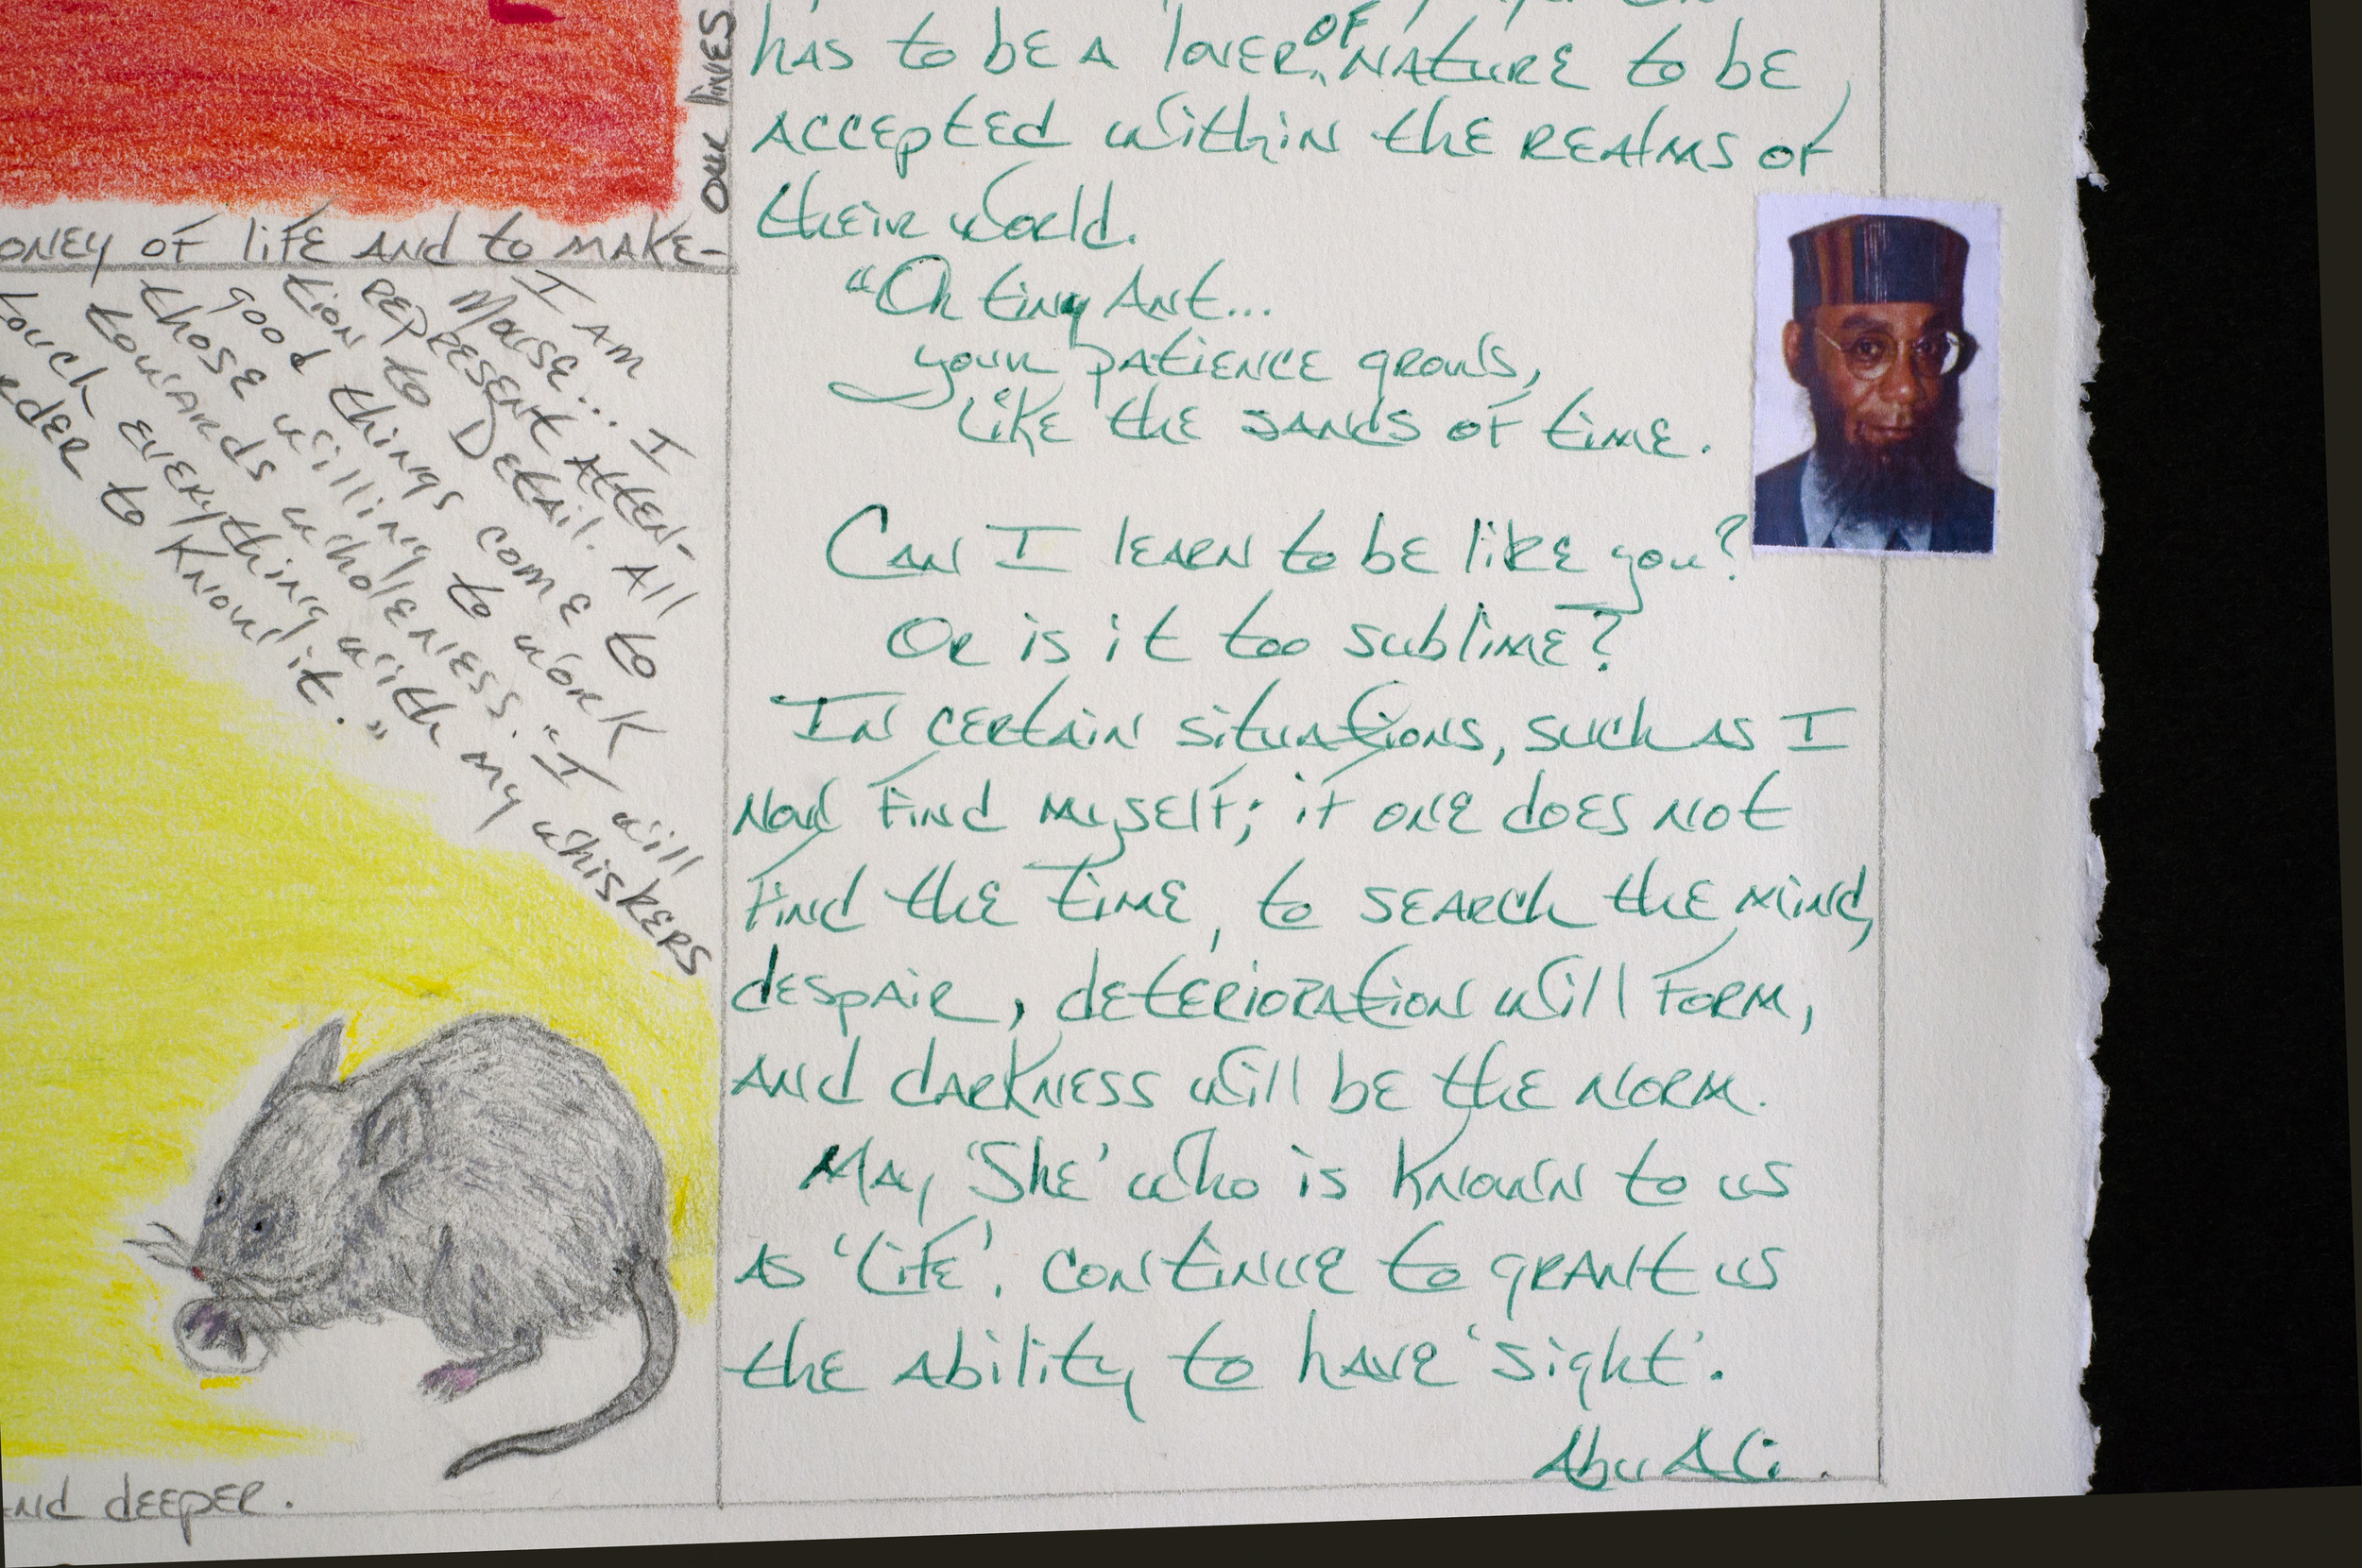 our lives
oney of life and to make-
I am
Mouse... I
represent atten-
tion to Detail. All
good things come to
those willing to work
towards wholeness. "I will
touch everything with my whiskers
to Know it."
end deeper.
has to be a lover of nature to be
accepted within the realms of
their world.
"Oh tiny Ant...
your patience grows,
like the sands of time.
Can I learn to be like you?
Or is it too sublime?
In certain situations, such as I
now find myself; if one does not
find the time, to search the mind,
despair, deterioration will form,
and darkness will be the norm.
May 'She' who is known to us
as 'life'. continue to grant us
the ability to have 'sight'.
Abu Ali.